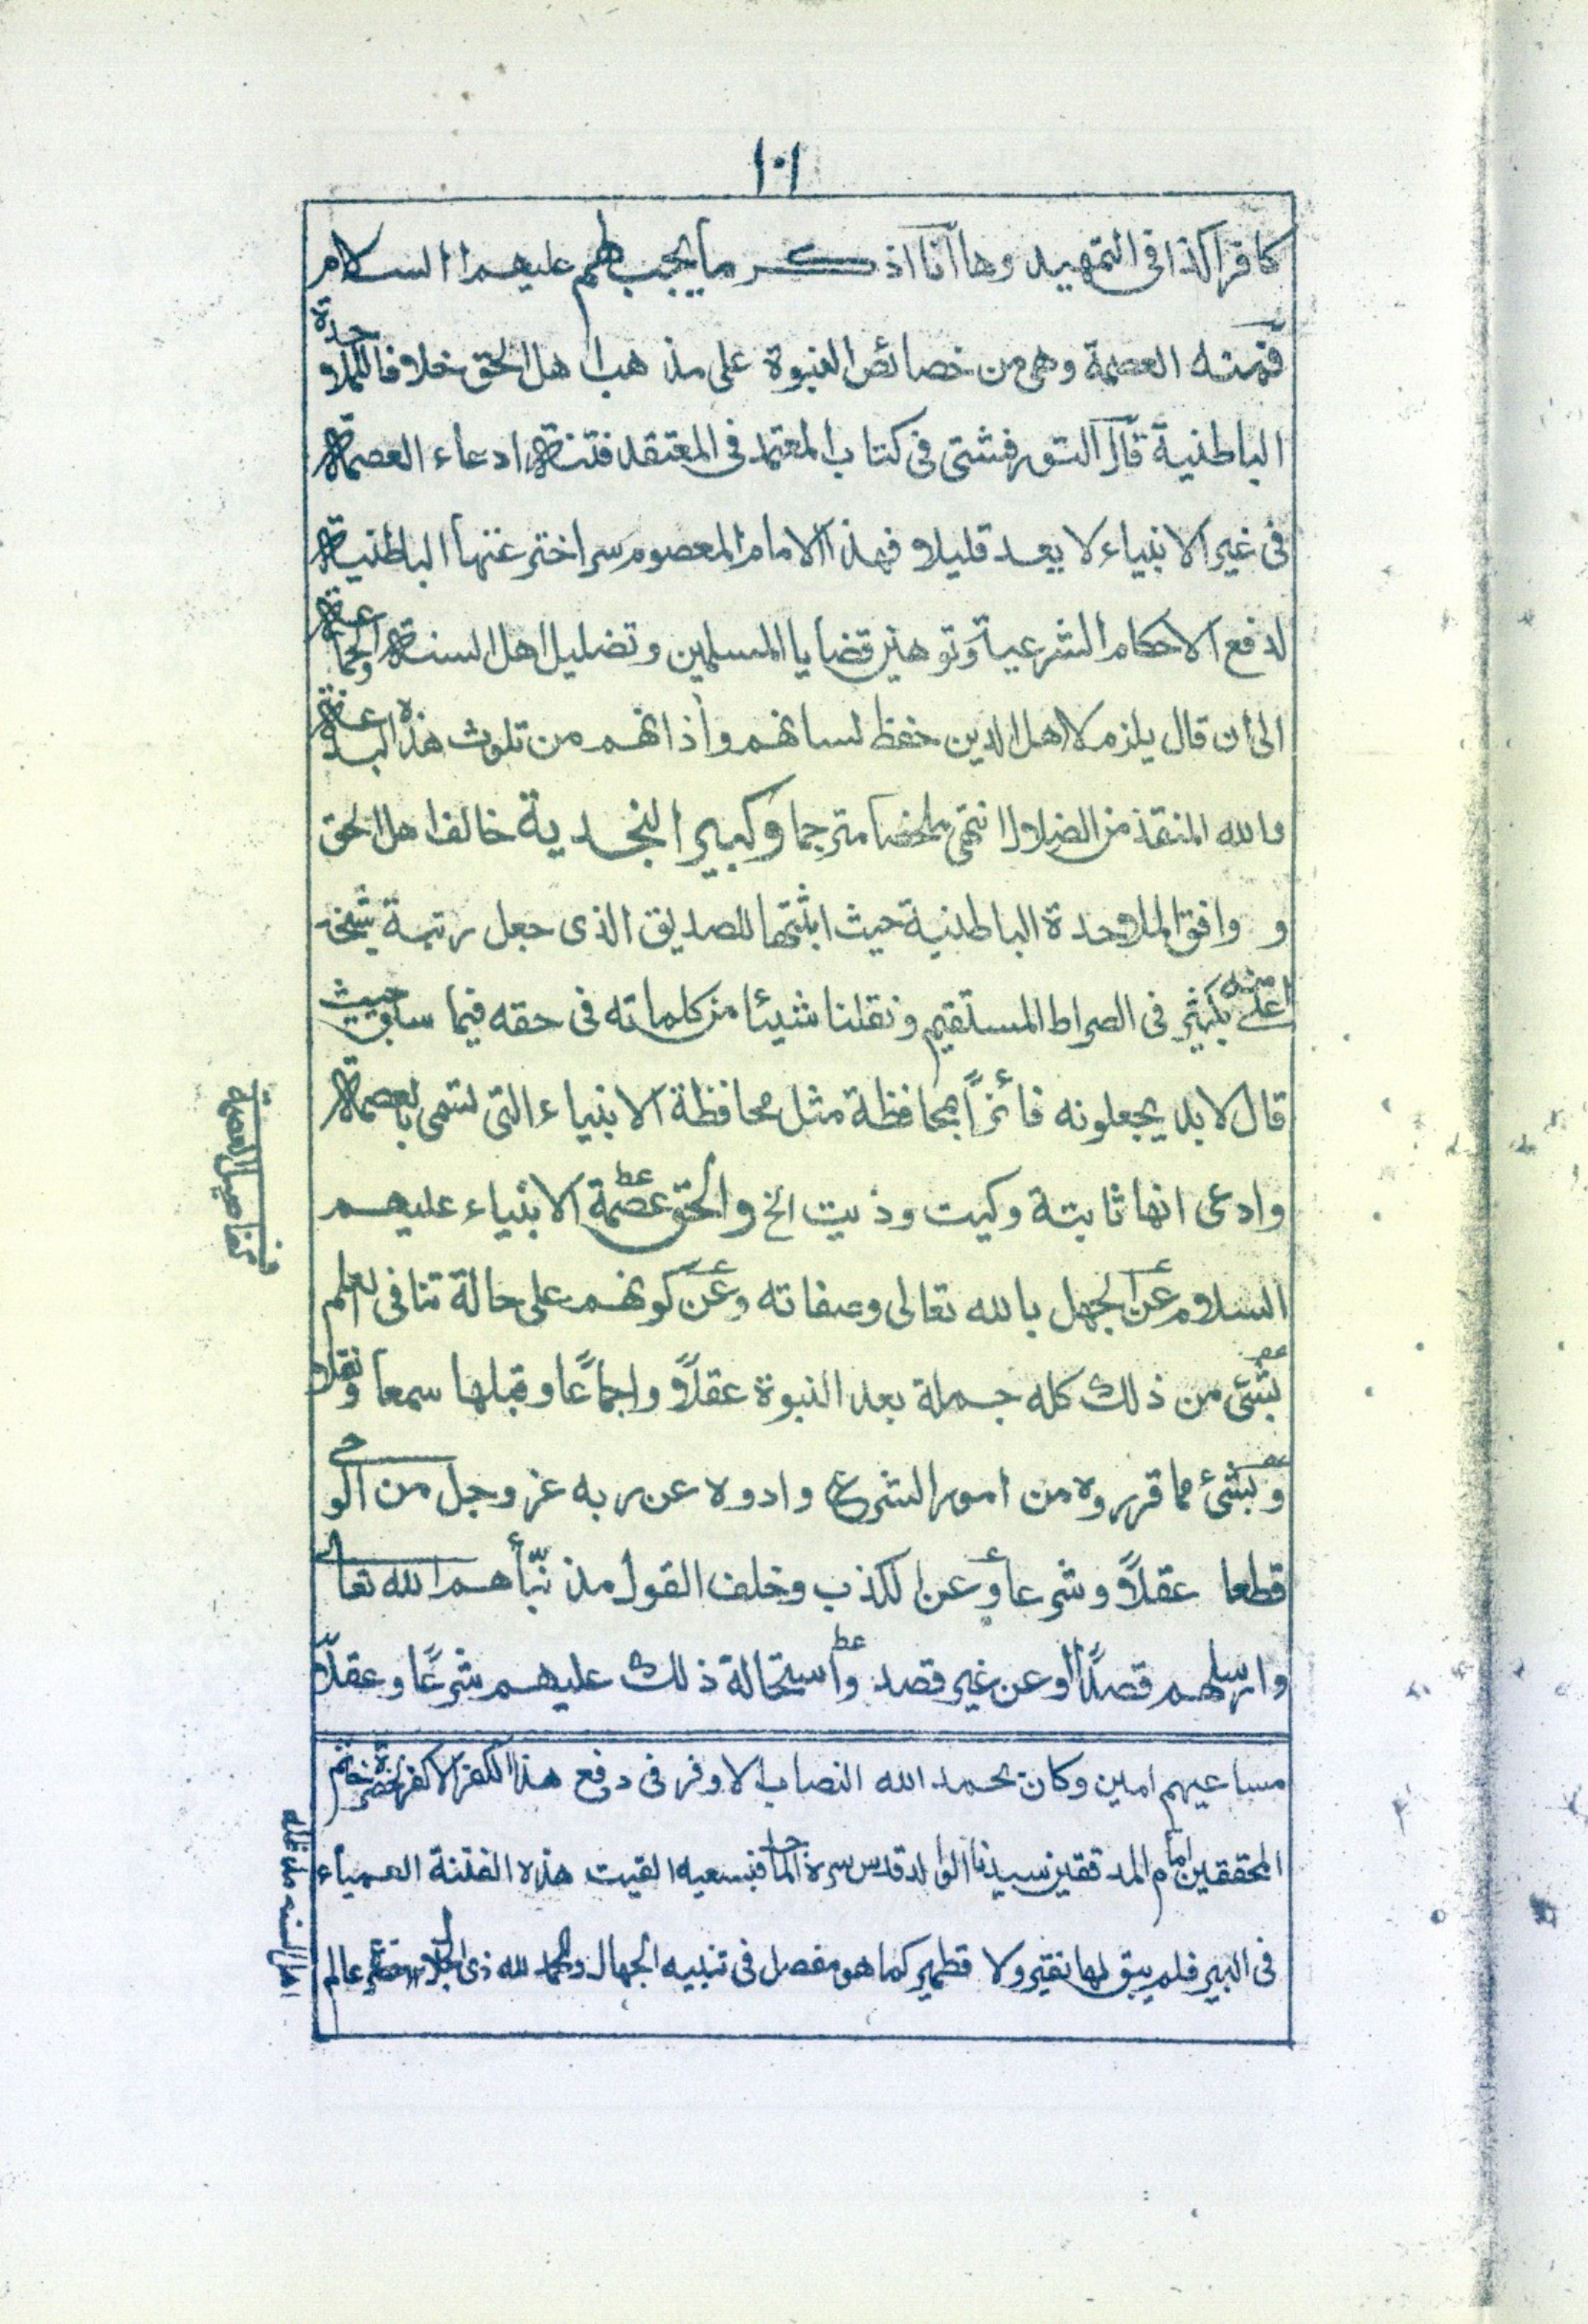 ١٠١
كافرا كذا فى التمهيد وها انا اذكر ما يجب لهم عليهم السلام
فمنه العصمة وهى من خصائص النبوة على مذهب اهل الحق خلافا للملاحدة
الباطنية قال التورفشتى فى كتاب المعتمد فى المعتقد فتنة ادعاء العصمة
فى غير الانبياء لا يعد قليلا فهذا الامام المعصوم سر اخترعتها الباطنية
لدفع الاحكام الشرعية وتوهين قضايا المسلمين وتضليل اهل السنة والجماعة
الى ان قال يلزم لاهل الدين حفظ لسانهم وأذانهم من تلوث هذه البدعة
والله المنقذ من الضلال انتهى ملخصا مترجما وكبير النجدية خالف اهل الحق
و وافق الملاحدة الباطنية حيث اثبتها للصديق الذى جعل رتبة شيخه
اعلى منه بكثير فى الصراط المستقيم ونقلنا شيئا من كلماته فى حقه فيما سبق حيث
قال لا بد يجعلونه فائزًا بمحافظة مثل محافظة الانبياء التى تسمى بالعصمة
وادعى انها ثابتة وكيت وذيت الخ والحق عصمة الانبياء عليهم
السلام عن الجهل بالله تعالى وصفاته وعن كونهم على حالة تنافى العلم
بشئ من ذلك كله جملة بعد النبوة عقلاً واجماعًا وقبلها سمعا ونقلا
وبشئ مما قرروه من امور الشرع وادوه عن ربه عز وجل من الوحى
قطعا عقلاً وشرعا وعن الكذب وخلف القول مذ نبّأهم الله تعالى
وارسلهم قصدًا او عن غير قصد واستحالة ذلك عليهم شرعًا وعقلاً
مساعيهم امين وكان بحمد الله النصاب الاوفر فى دفع هذا الكفر الاكفر لحضرة خاتم
المحققين امام المدققين سيدنا الوالد قدس سره الماجد فبسعيه القيت هذه الفتنة العمياء
فى البير فلم يبق لها نقير ولا قطمير كما هو مفصل فى تنبيه الجهال والحمد لله ذى الجلال عالم
اهل السنه مد ظله